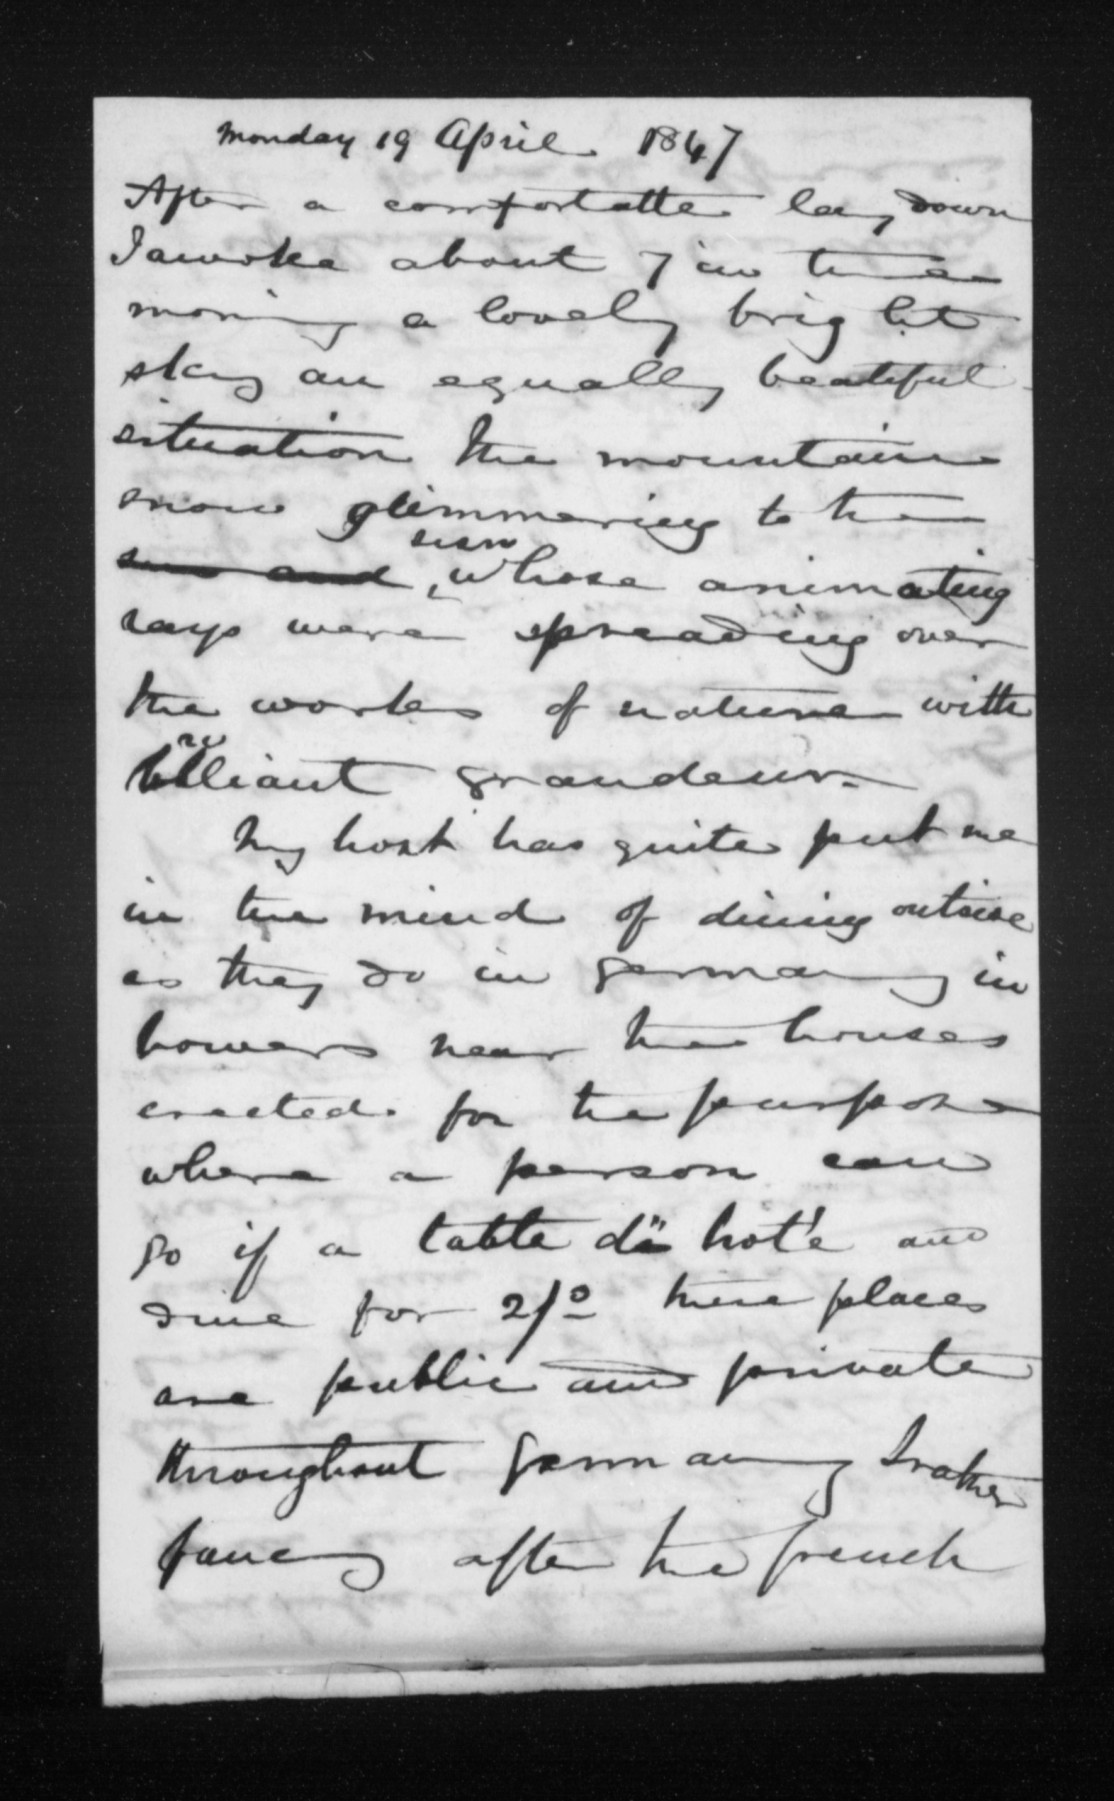 Monday 19 April 1847
After a comfortatte lay down
I awoke about 7 in the
morning a lovely bright
sky an equally beatiful
situation the mountain
snow glimmering to the
sun and sun whose animating
rays were spreading over
the works of nature with
brilliant grandeur.
My host has quite put me
in the mind of dining outside
as they do in germany in
bowers near the houses
erected for the purpose
where a person can
go if a table dä hot'e and
dine for 2/0 these places
are public and private
throughout germany I rather
fancy after the french